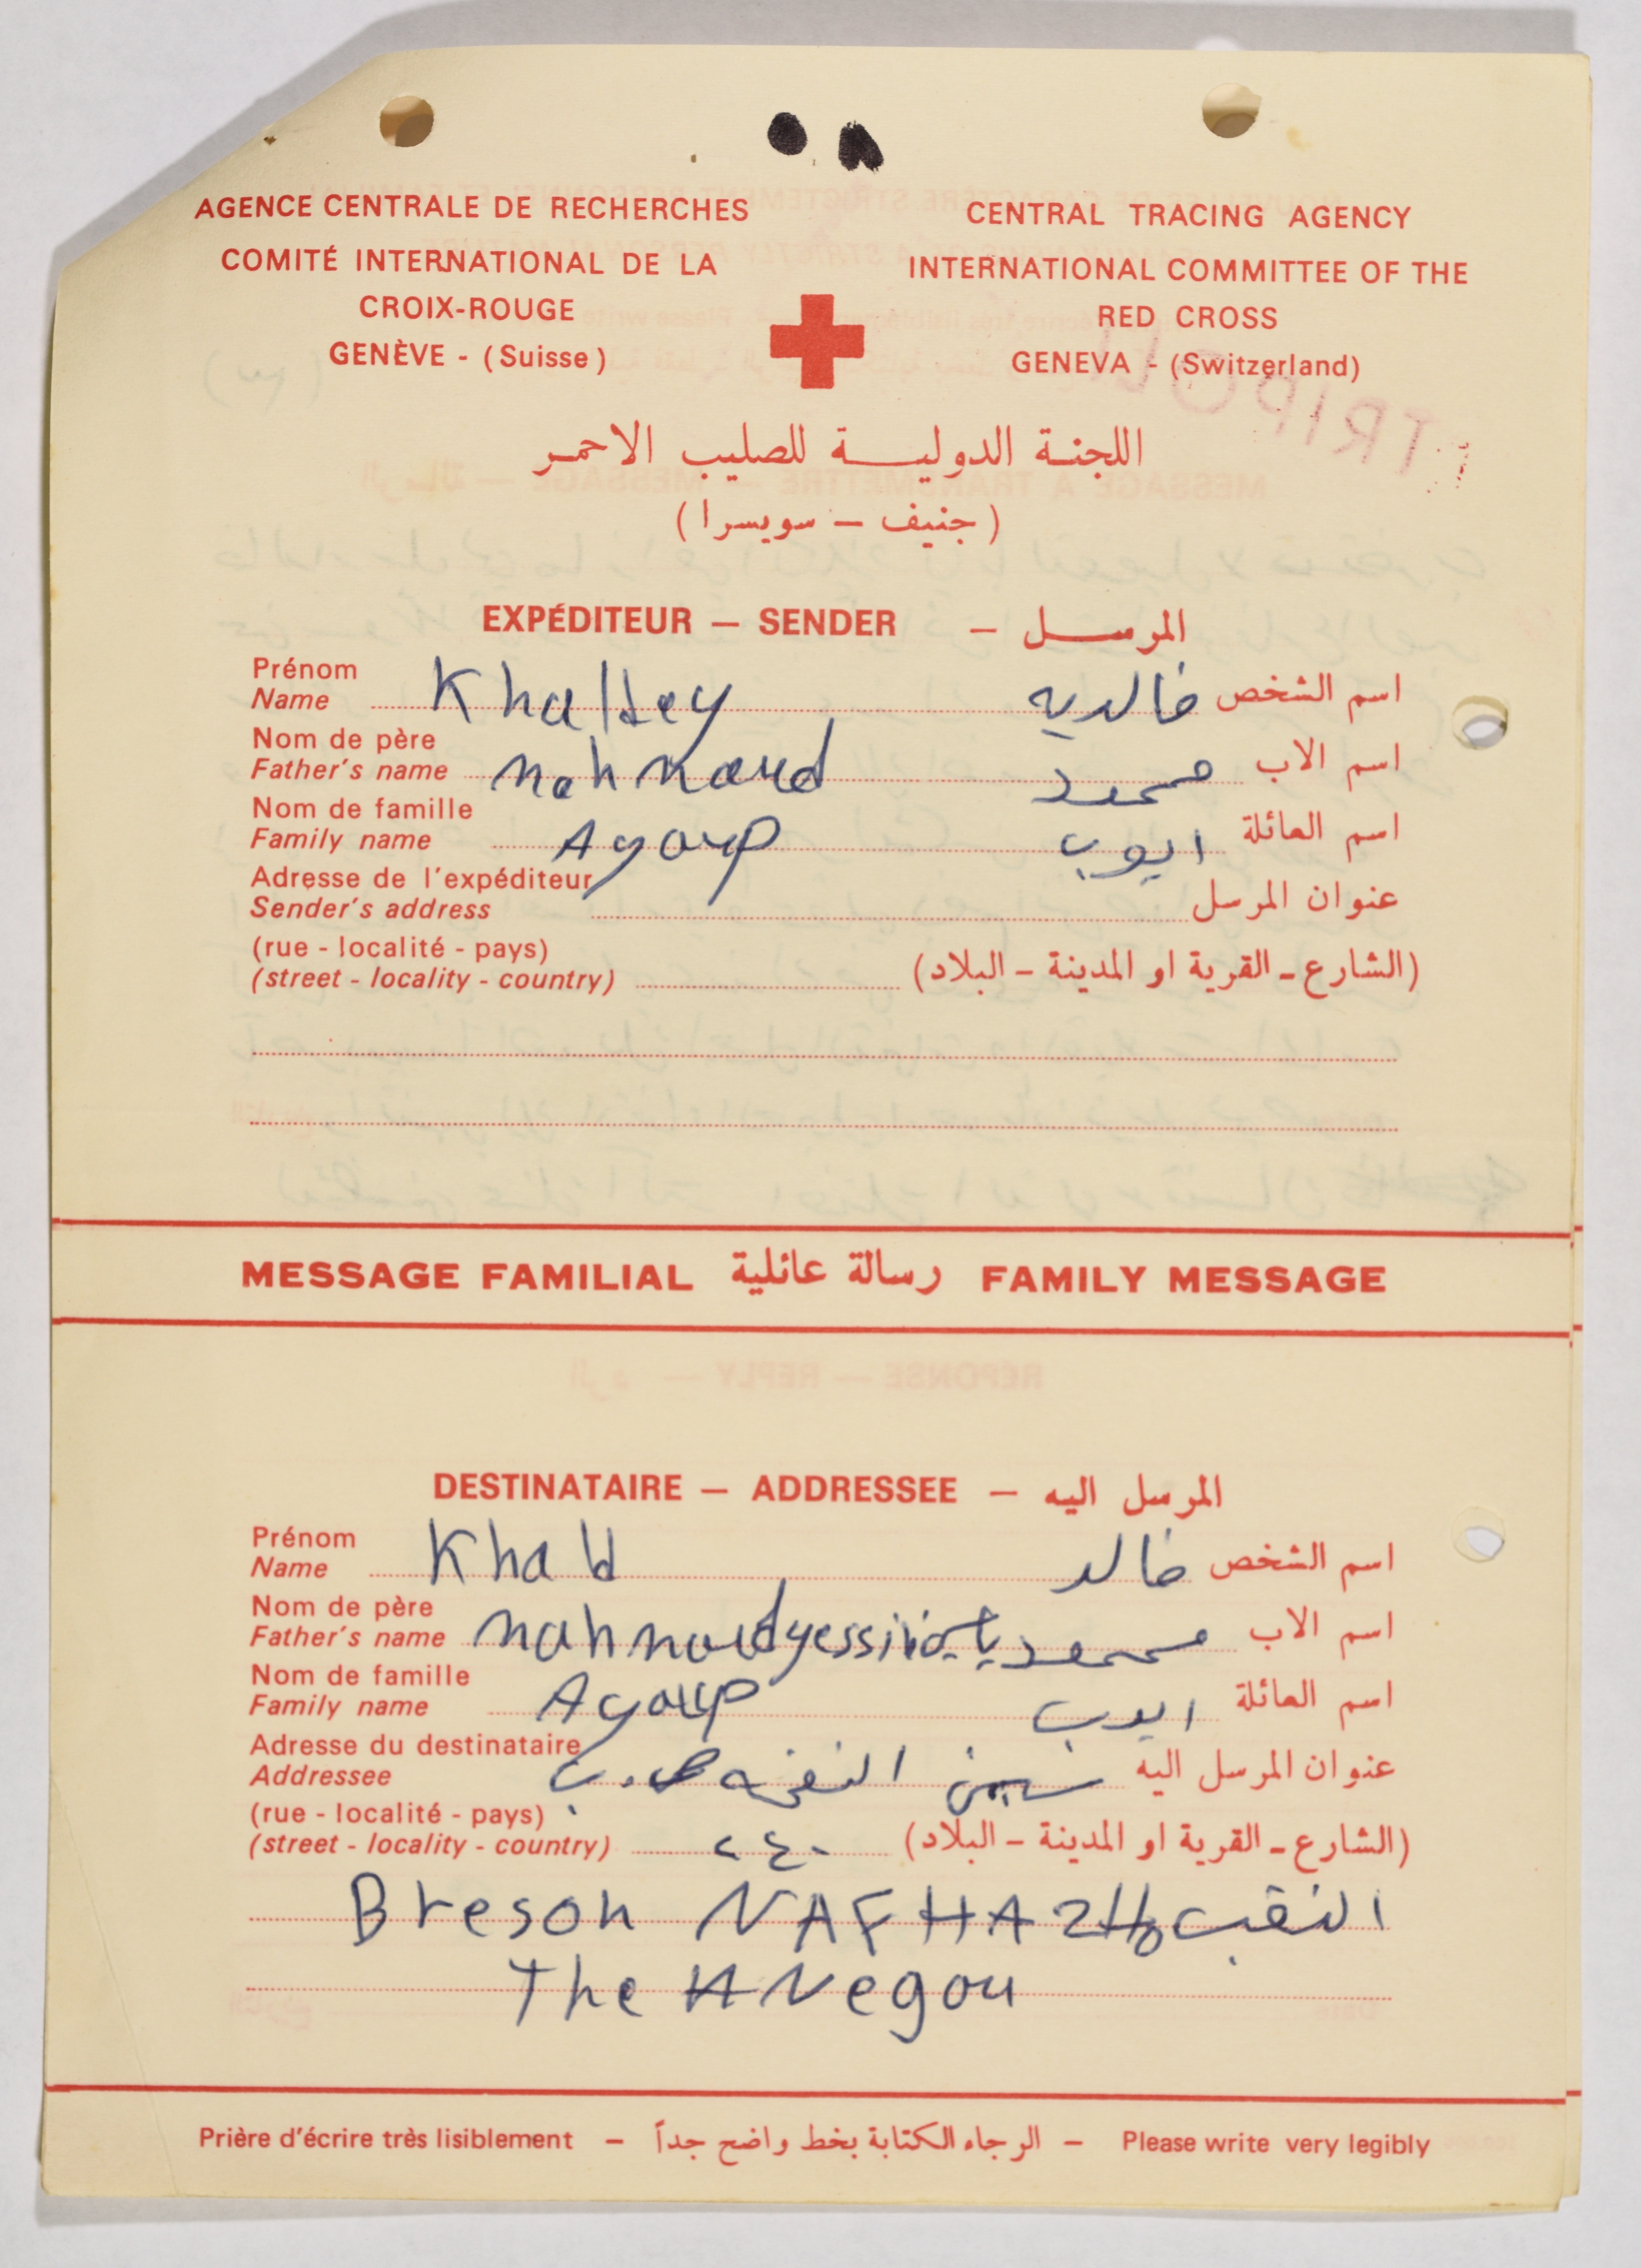 AGENCE CENTRALE DE RECHERCHES
COMITÉ INTERNATIONAL DE LA
CROIX-ROUGE
GENÈVE - (Suisse)
CENTRAL TRACING AGENCY
INTERNATIONAL COMMITTEE OF THE
RED CROSS
GENEVA - (Switzerland)
TRIPOLI
اللجنة الدولية للصليب الاحمر
(جنيف - سويسرا)
EXPÉDITEUR — SENDER — المرسل
Prénom
Name Khaltey خالديه اسم الشخص
Nom de père
Father's name mahmoud محمود اسم الاب
Nom de famille
Family name Ayoup ايوب اسم العائلة
Adresse de l'expéditeur
Sender's address عنوان المرسل
(rue - localité - pays)
(street - locality - country) (الشارع - القرية او المدينة - البلاد)
MESSAGE FAMILIAL رسالة عائلية FAMILY MESSAGE
DESTINATAIRE — ADDRESSEE — المرسل اليه
Prénom
Name Khald خالد اسم الشخص
Nom de père
Father's name mahmoud yessin محمود ياسين اسم الاب
Nom de famille
Family name Ayoup ايوب اسم العائلة
Adresse du destinataire
Addressee النفحه ص.ب عنوان المرسل اليه
(rue - localité - pays)
(street - locality - country) ٢٤٠ (الشارع - القرية او المدينة - البلاد)
Breson NAFHA النقب
The Negou
Prière d'écrire très lisiblement — الرجاء الكتابة بخط واضح جداً — Please write very legibly